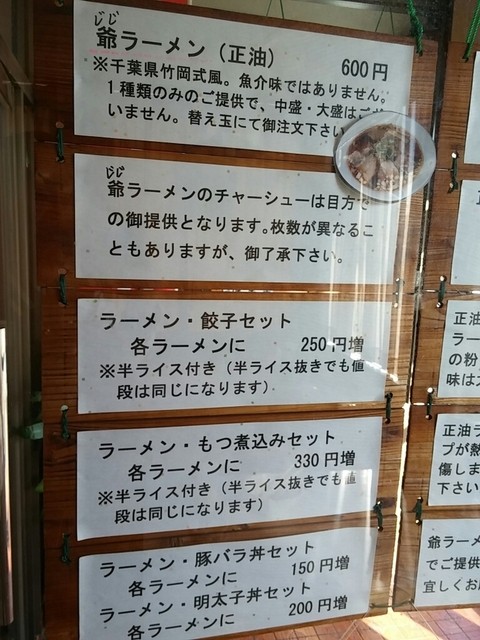 じじ
爺ラーメン（正油） 600円
※千葉県竹岡式風。魚介味ではありません。
１種類のみのご提供で、中盛・大盛はござ
いません。替え玉にて御注文下さい
じじ
爺ラーメンのチャーシューは目方で
の御提供となります。枚数が異なるこ
ともありますが、御了承下さい。
ラーメン・餃子セット
各ラーメンに 250円増
※半ライス付き（半ライス抜きでも値
段は同じになります）
ラーメン・もつ煮込みセット
各ラーメンに 330円増
※半ライス付き（半ライス抜きでも値
段は同じになります）
ラーメン・豚バラ丼セット
各ラーメンに 150円増
ラーメン・明太子丼セット
各ラーメンに 200円増
正油
ラー
の粉
味は
正油ラ
プが熱
傷しま
下さい
爺ラー
でご提供
宜しくお